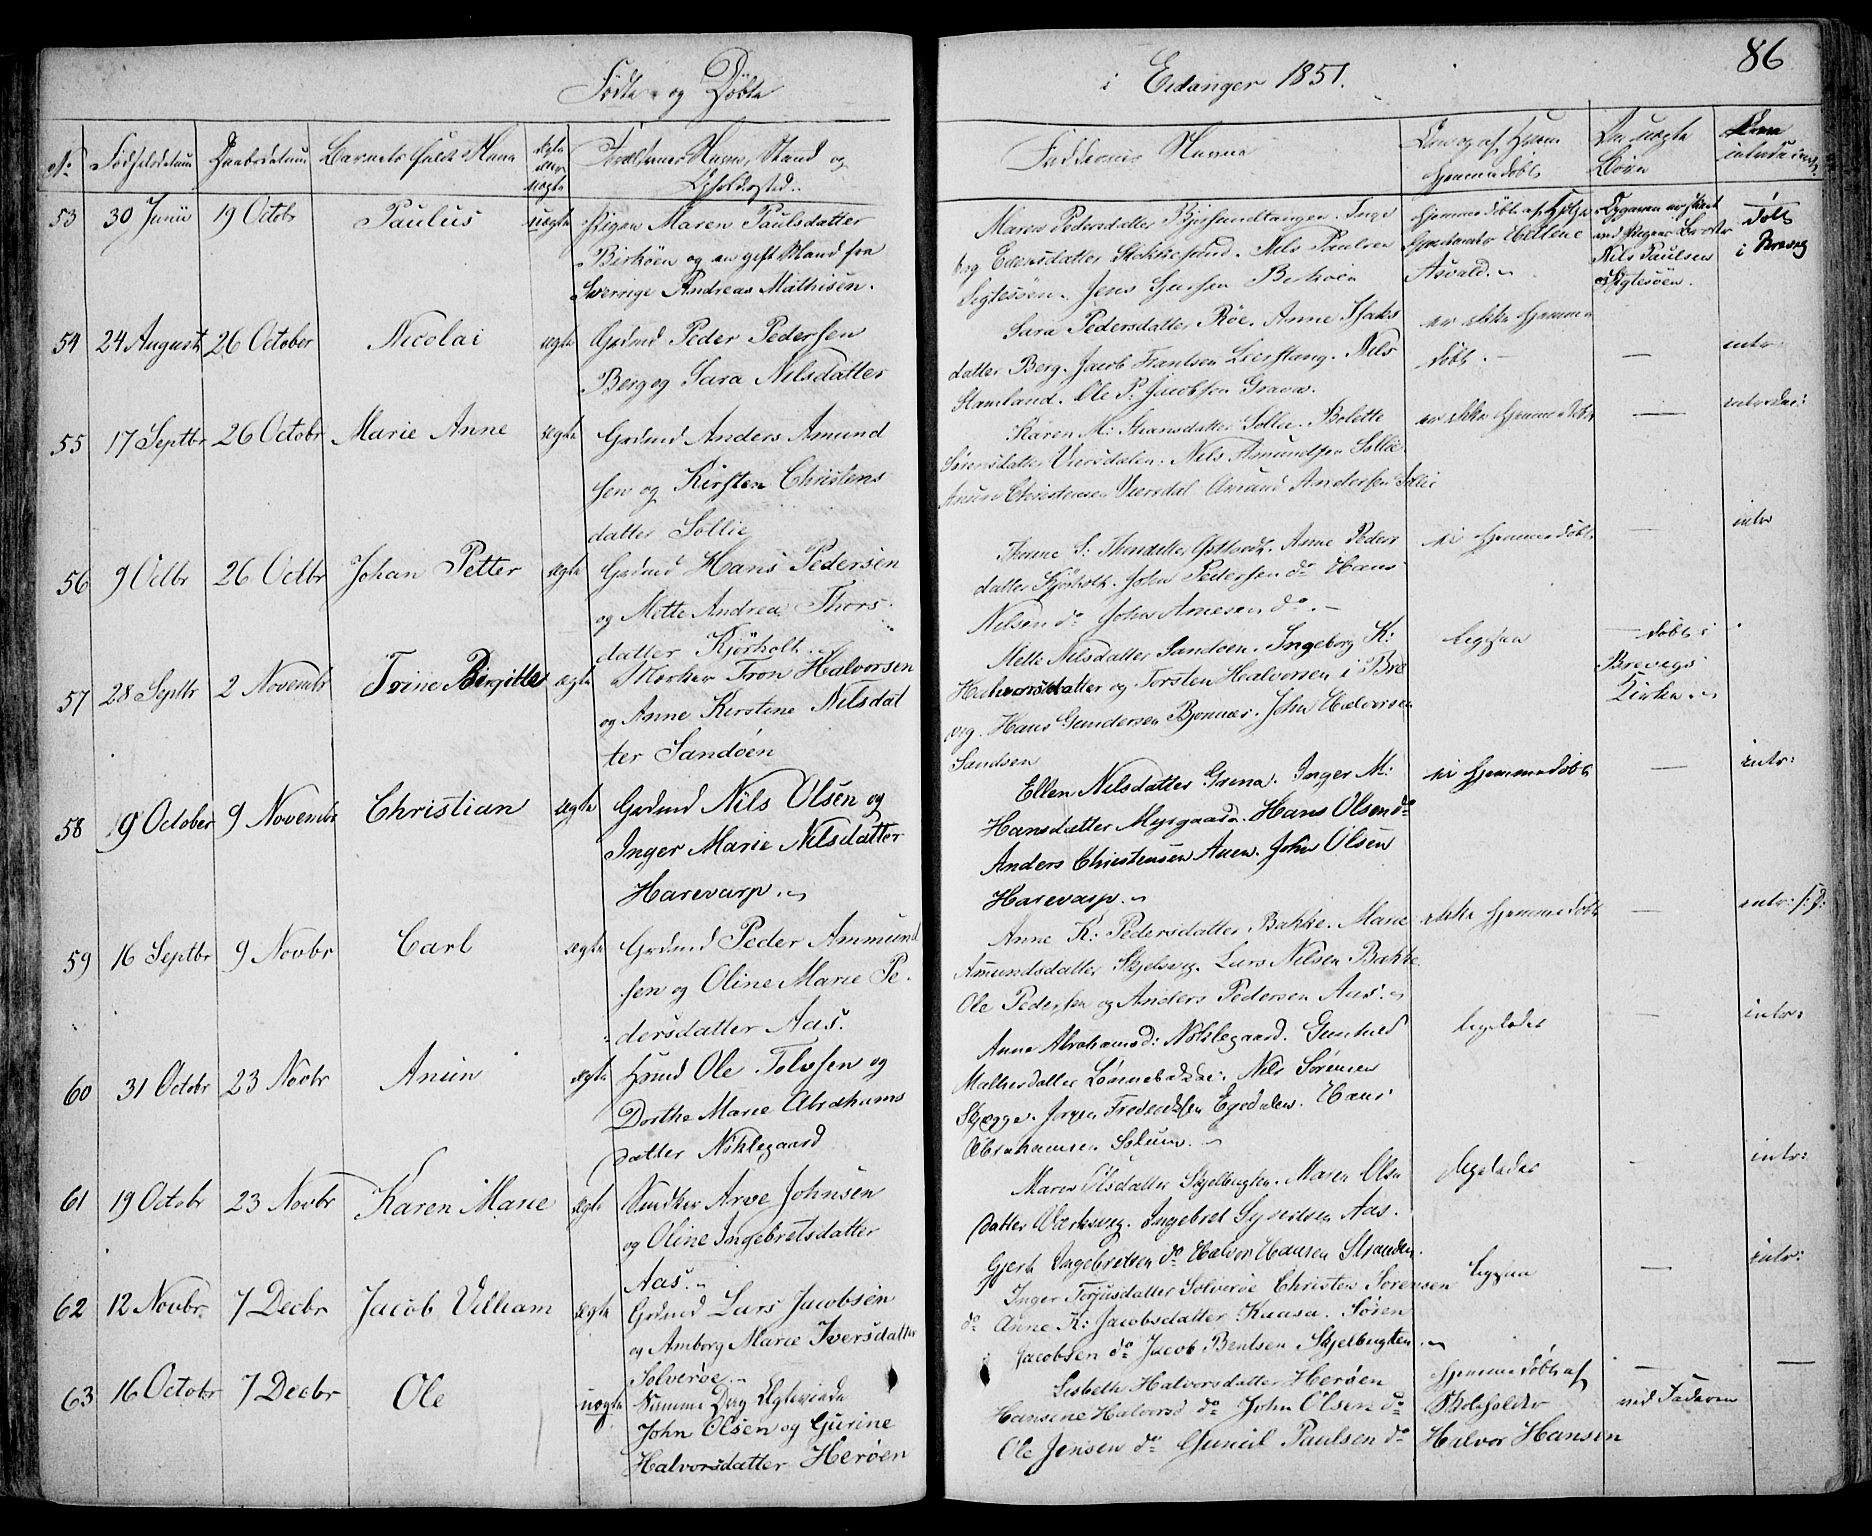 Födte og Döbte
i Eidanger 1851.
86
No
Födselsdatum
Daabsdatum
Barnets fulde Navn
ægte eller uægte
Forældrenes Navn, Stand og
Opholdssted.
Faddernes Navne
Om og af hvem
hjemmedöbt
De uægte
Börn
53 30 Junii 19 Octobr Paulus uægte
Pigen Maren Paulsdatter
Birköen og en gift Mand fra
Sverrige Andreas Mathisen.
Maren Pedersdatter Inge
borg Evensdatter Stokkesund. Nils Paulsen
Sigtesöen. Jens Birköen
Hjemmedöbt af
Asvald.
Nils Paulsen
Sigtesöen.
Döbt
i Brevig
54 24 August 26 October Nicolai ægte
Grdmd Peder Pedersen
Berg og Sara Nilsdatter
Sara Pedersdatter Röe. Anne Isaks
datter Berg. Jacob Frantsen Leerstang. Nils
Stamland. Ole P. Jacobsen Grava.
er ikke hjemme
döbt. —
—
intr:
55 17 Septbr 26 Octobr Marie Anne ægte
Grdmd Anders Amund
sen og Kirsten Christens
datter Sollie
Karen M: Hansdatter Sollie. Bolette
Sörensdatter Viersdalen. Nils Amundsen Sollie
Christensen Viersdal Amund Andersen Solli
er ikke hjemmedöbt
—
introduc:
56 9 Octbr 26 Octbr Johan Petter ægte
Grdmd Hans Pedersen
og Mette Andrea Thors
datter Kjörholt.
Anne Peders
datter Kjörholt. John Pedersen do Hans
Nilsen do John Arnesen do. —
ei hjemmedöbt
—
intr
57 28 Septbr 2 Novembr Trine Birgitte ægte
Tron Halvorsen
og Anne Kirstine Nilsdat
ter Sandöen
Mette Nilsdatter Sandöen. Ingeborg K:
Halvorsdatter og Torsten Halvorsen i Bre
vig. Hans Gundersen Bjonnæs. John Halvorsen
Sandöen
ligesaa
— döbt i
Brevigs
Kirke.
58 9 October 9 Novembr Christian ægte
Grdmd Nils Olsen og
Inger Marie Nilsdatter
Harevarp.
Ellen Nilsdatter Grena. Inger M:
Hansdatter Myrgaard. Hans Olsen do
Anders Christensen Auen. John Olsen
Harevarp.
ei hjemmedöbt
—
intr:
59 16 Septbr 9 Novbr Carl ægte
Grdmd Peder Ammund
sen og Oline Marie Pe-
dersdatter Aas.
Anne K: Pedersdatter Bakke. Marie
Amundsdatter Skjelsvig. Lars Nilsen Bakke
Ole Pedersen og Anders Pedersen Aas.
ikke hjemmedöbt
—
intr:
60 31 Octobr 23 Novbr Anun ægte
Hsmd Ole Tolvsen og
Dorthe Marie Abrahams
datter Nöklegaard
Anne Abrahamsd: Nöklegaard. Gunhild
Mathisdatter Lönnebakke. Nils Sörensen
Skjegge. Jörgen Fredriksen Egedalen. Hans
Abrahamsen Solum.
ligeledes
—
intr:
61 19 Octobr 23 Novbr Karen Marie ægte
Arve Johnsen
og Oline Ingebretsdatter
Aas.
Maren Olsdatter Skjelbugten. Maren Ols
datter Værksvig. Ingebret Syvertsen Aas.
Gjert Ingebretsen do Halvor Hansen Stranden.
ligeledes
—
intr:
62 12 Novbr 7 Decbr Jacob Villiam ægte
Grdmd Lars Jacobsen
og Amborg Marie Iversdatter
Solveröe.
Inger Torjusdatter Solveröe Christen Sorensen
do Anne K: Jacobsdatter Kaasa. Sören
Jacobsen do Jacob Bentsen Skjelbugten.
ligesaa
—
intr:
63 16 Octobr 7 Decbr Ole uægte
Samme Dag Ægteviede
John Olsen og Gurine
Halvorsdatter Heröen
Lisbeth Halvorsdatter Heröen
Hansine Halvorsd do John Olsen do
Ole Jensen do Gunild Paulsen do
Hjemmedöbt af
Skoleholder
Halvor Hansen
—
ved Faderen
—